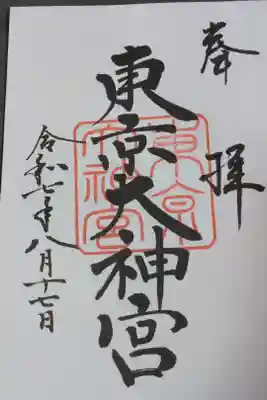 奉拝
東京大神宮
令和七年八月十七日
東京大神宮